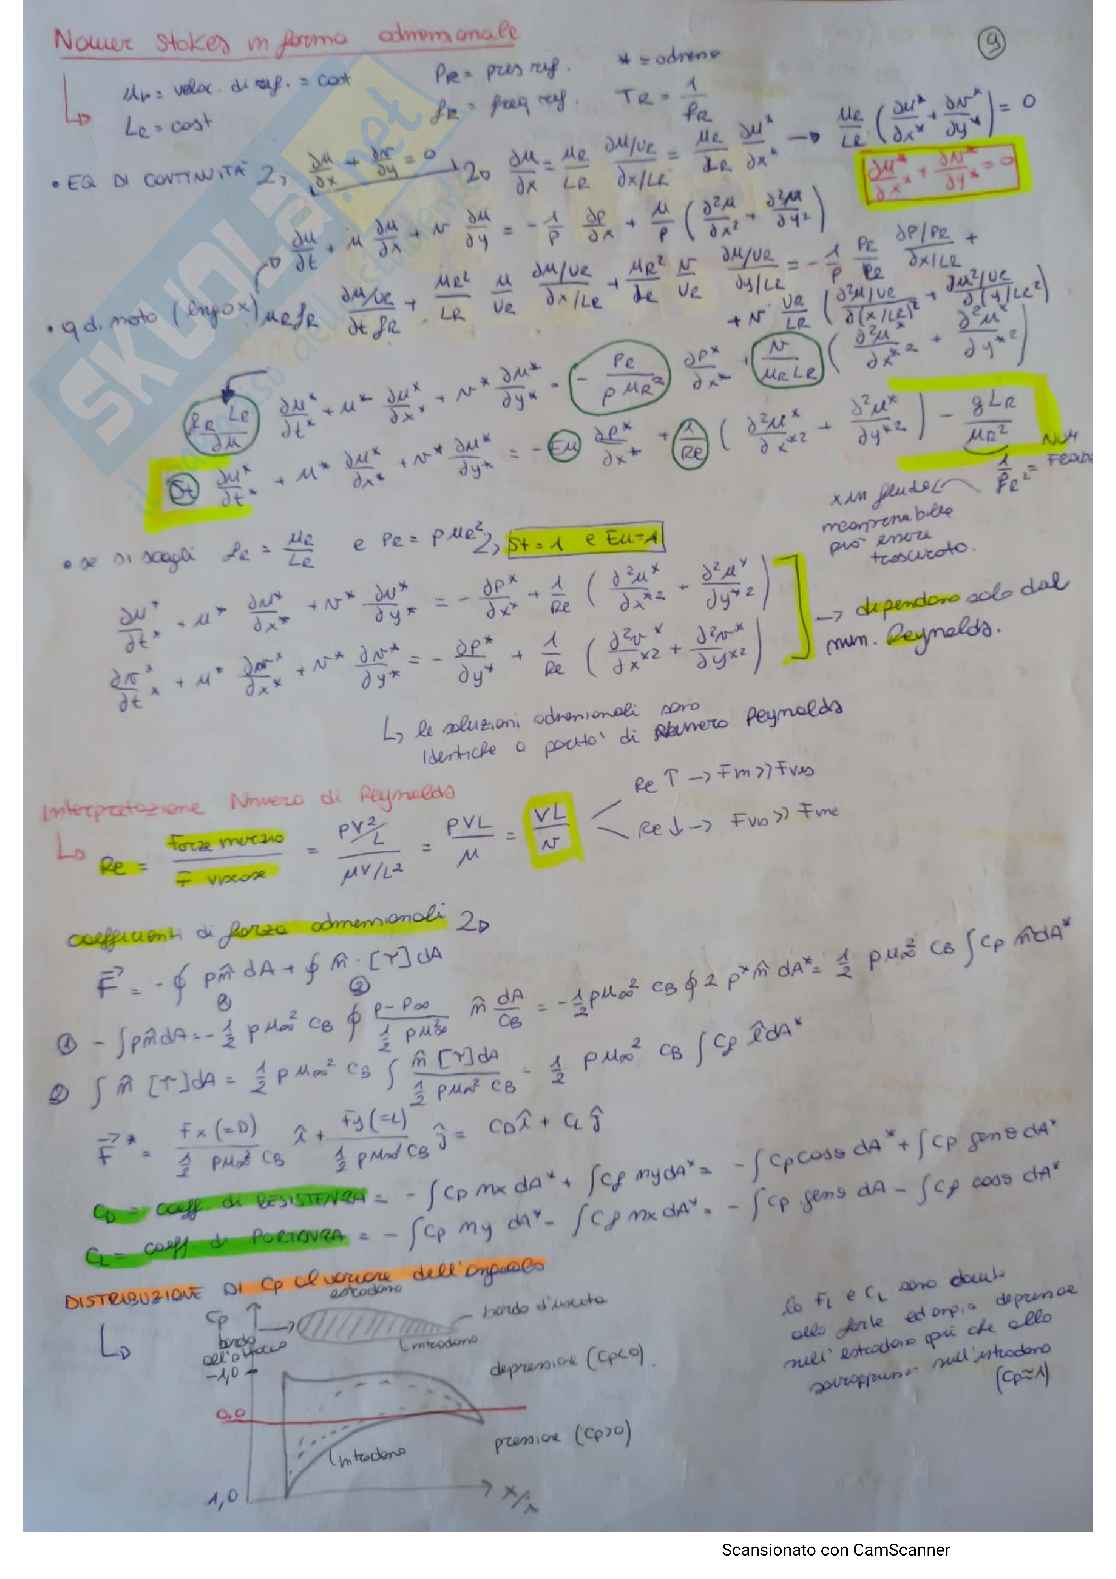 Navier Stokes in forma adimensionale
9
ur = veloc. di rif. = cost PR = pres rif. * = adimens
LR = cost fR = freq rif. TR = 1/fR
• EQ DI CONTINUITÀ ∂u/∂x + ∂v/∂y = 0 ∂u/∂x = uR/LR ∂u/UR/∂x/LR = uR/LR ∂u*/∂x* → uR/LR (∂u*/∂x* + ∂v*/∂y*) = 0
∂u*/∂x* + ∂v*/∂y* = 0
∂u/∂t + u ∂u/∂x + v ∂u/∂y = - 1/ρ ∂p/∂x + μ/ρ (∂²u/∂x² + ∂²u/∂y²)
• q di moto (lungo x) uR fR ∂u/UR/∂t fR + uR²/LR u/UR ∂u/UR/∂x/LR + uR²/LR v/UR ∂u/UR/∂y/LR = - 1/ρ PR/LR ∂P/PR/∂x/LR +
+ ν UR/LR (∂²u/UR/∂(x/LR)² + ∂u²/UR/∂(y/LR²)
fR LR/u ∂u*/∂t* + u* ∂u*/∂x* + v* ∂u*/∂y* = - PR/ρ uR² ∂P*/∂x* + ν/uR LR (∂²u*/∂x*² + ∂²u*/∂y*²)
St ∂u*/∂t* + u* ∂u*/∂x* + v* ∂u*/∂y* = - Eu ∂P*/∂x* + 1/Re (∂²u*/∂x*² + ∂²u*/∂y*²) - g LR/uR²
1/FR² = NUM FROUDE
x un fluido
incomprimibile
può essere
trascurato.
• se si scegli fR = uR/LR e PR = ρ uR² St = 1 e Eu = 1
∂u*/∂t* + u* ∂u*/∂x* + v* ∂u*/∂y* = - ∂P*/∂x* + 1/Re (∂²u*/∂x*² + ∂²u*/∂y*²)
→ dipendono solo dal
num. Reynolds.
∂v*/∂t* + u* ∂v*/∂x* + v* ∂v*/∂y* = - ∂P*/∂y* + 1/Re (∂²v*/∂x*² + ∂²v*/∂y*²)
le soluzioni adimensionali sono
identiche a parità di Numero Reynolds
Interpretazione Numero di Reynolds
Re ↑ → Fin >> Fvis
Re = Forze inerzia/F viscose = ρV²/L/μV/L² = ρVL/μ = VL/ν
Re ↓ → Fvis >> Fine
coefficienti di forza adimensionali
F = - ∮ p n̂ dA + ∮ n̂ · [τ] dA
① - ∫ p n̂ dA = - 1/2 ρ u∞² CB ∮ p - p∞/1/2 ρ u∞² n̂ dA/CB = - 1/2 ρ u∞² CB ∮ 2 p* n̂ dA* = 1/2 ρ u∞² CB ∫ Cp n̂ dA*
② ∫ n̂ [τ] dA = 1/2 ρ u∞² CB ∫ n̂ [τ] dA/1/2 ρ u∞² CB = 1/2 ρ u∞² CB ∫ Cf t̂ dA*
F* = Fx (=D)/1/2 ρ u∞² CB î + Fy (=L)/1/2 ρ u∞² CB ĵ = CD î + CL ĵ
CD = coeff di RESISTENZA = - ∫ Cp nx dA* + ∫ Cf ny dA* = - ∫ Cp cosθ dA* + ∫ Cf senθ dA*
CL = coeff di PORTANZA = - ∫ Cp ny dA* - ∫ Cf nx dA* = - ∫ Cp senθ dA - ∫ Cf cosθ dA*
DISTRIBUZIONE DI Cp al variare dell'angolo
estradosso
Cp
bordo d'uscita
bordo
all'attacco
intradosso
-1,0
depressione (Cp<0).
0,0
pressione (Cp>0)
intradosso
1,0
la FL e CL sono dovute
alla forte ed ampia depressione
sull'estradosso più che alla
sovrappressione sull'intradosso
(Cp≈1)
SKUOLA.net
Scansionato con CamScanner